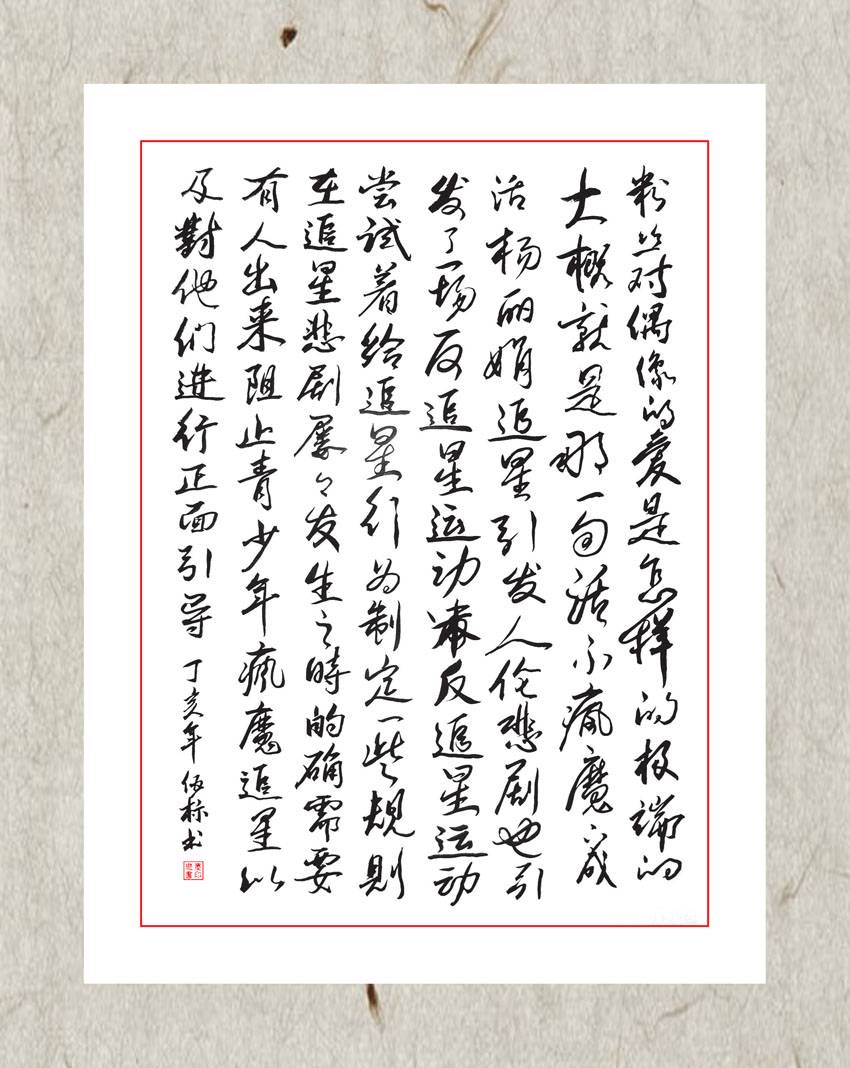 粉丝对偶像的爱是怎样的极端的
大概就是那一句话不疯魔不成
活杨丽娟追星引发人伦悲剧也引
发了一场反追星运动反追星运动
尝试着给追星行为制定一些规则
在追星悲剧屡々发生之時的确需要
有人出来阻止青少年疯魔追星以
及對他们進行正面引导 丁亥年 标书